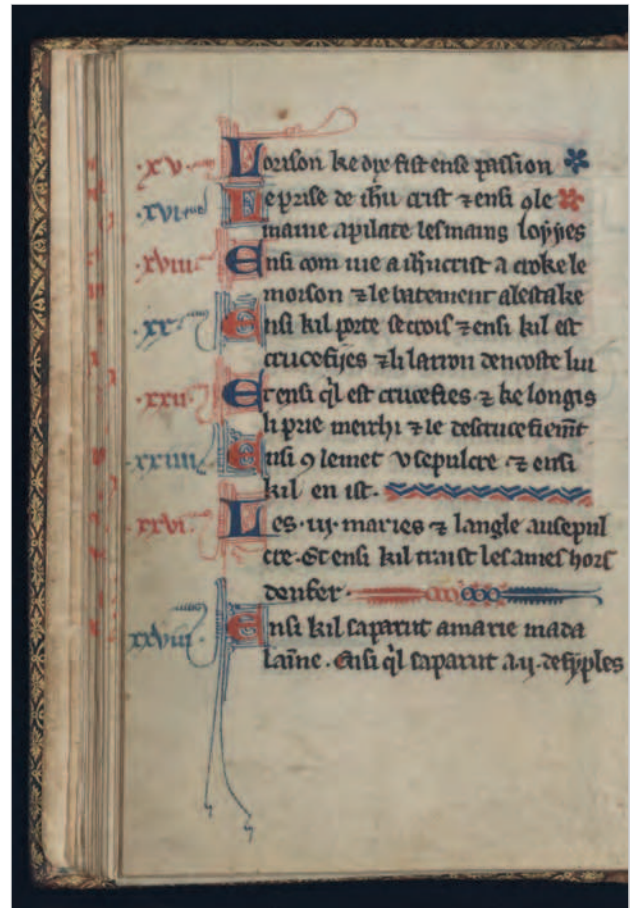 .xv. Lorison ke dix fist en se passion
.xvi. Le prise de ihu crist ⁊ ensi ꝯ le
maine a pilate les mains loijies
.xviii. Ensi com me a ihucrist a croke le
morson ⁊ le batement a lestake
.xx. Ensi kil porte se crois ⁊ ensi kil est
crucefijes ⁊ li larron dencoste lui
.xxii. Et ensi ql est crucefies ⁊ ke longis
li prie merchi ⁊ le descrucefiemt
.xxiiii. Ensi ꝯ le met v sepulcre ⁊ ensi
kil en ist.
.xxvi. Les .iij. maries ⁊ langle au sepul
cre. Et ensi kil traist les ames hors
denfer.
.xxviii. Ensi kil saparut a marie mada
laine. Ensi ql saparut a .ij. desijples